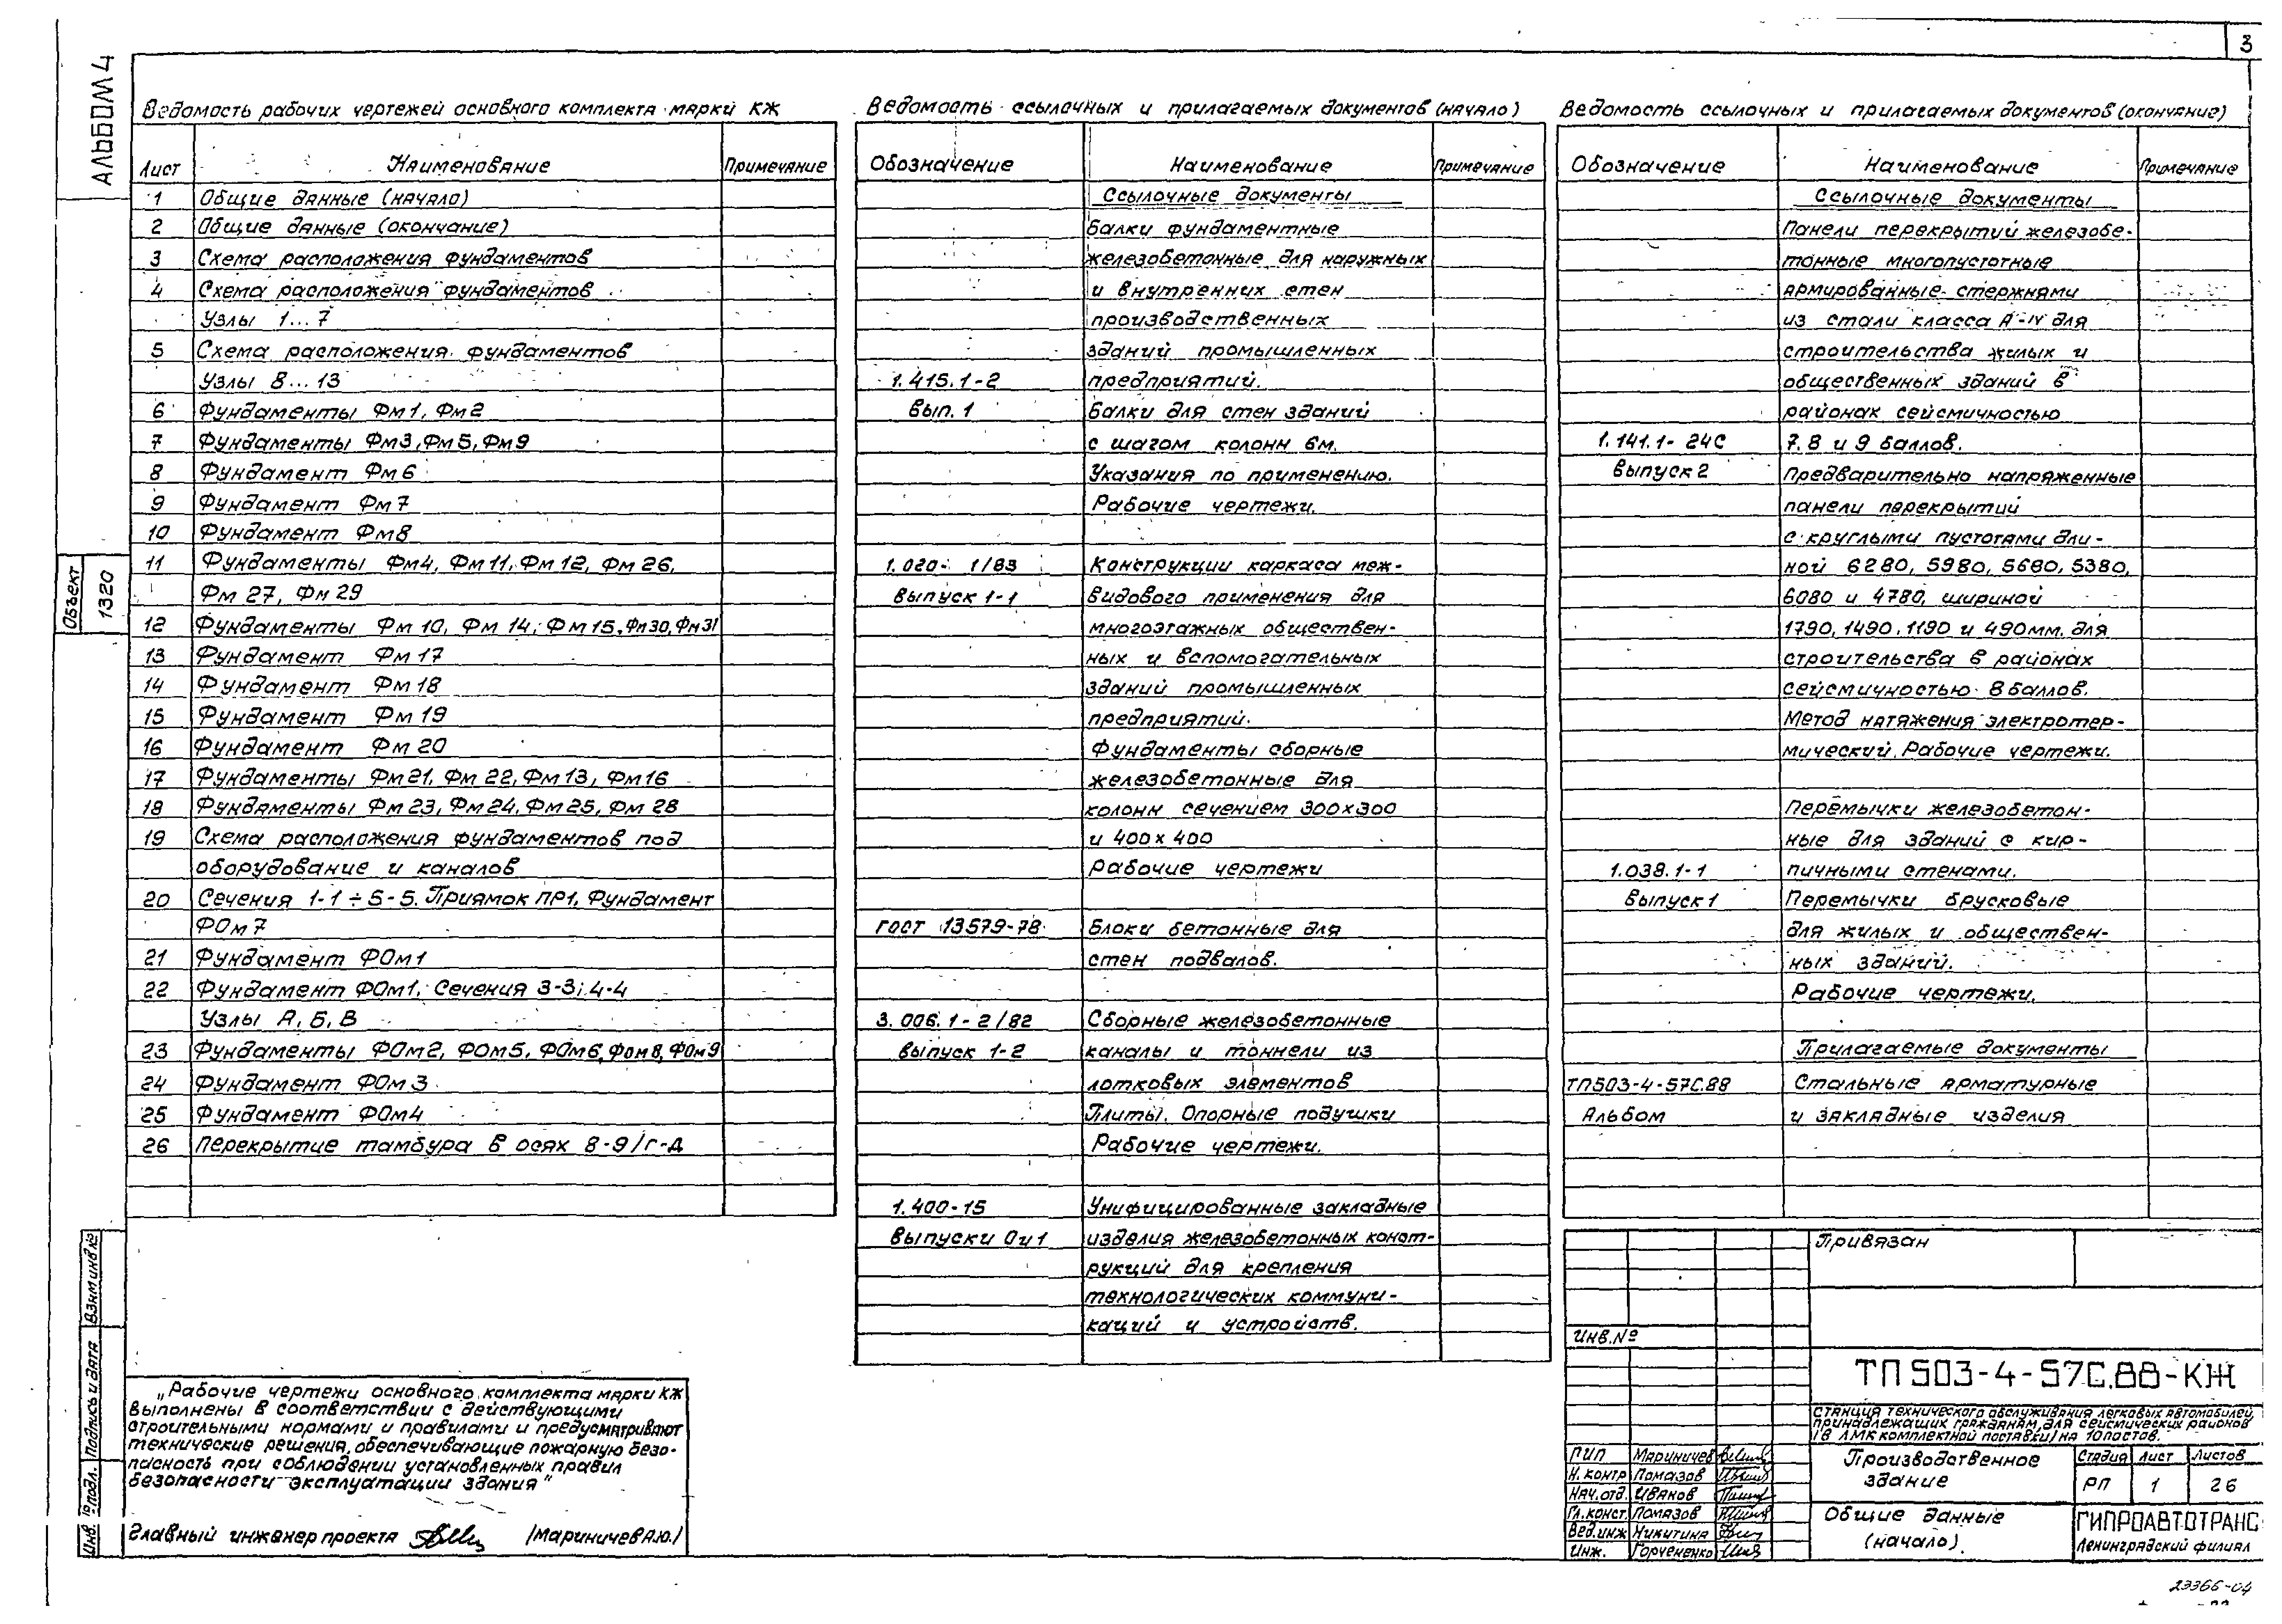 3
АЛЬБОМ 4
Объект
1320
Ведомость рабочих чертежей основного комплекта марки КЖ
Лист Наименование Примечание
1 Общие данные (начало)
2 Общие данные (окончание)
3 Схема расположения фундаментов
4 Схема расположения фундаментов
Узлы 1...7
5 Схема расположения фундаментов
Узлы 8...13
6 Фундаменты Фм1, Фм2
7 Фундаменты Фм3, Фм5, Фм9
8 Фундамент Фм6
9 Фундамент Фм7
10 Фундамент Фм8
11 Фундаменты Фм4, Фм11, Фм12, Фм26,
Фм27, Фм29
12 Фундаменты Фм10, Фм14; Фм15, Фм30, Фм31
13 Фундамент Фм17
14 Фундамент Фм18
15 Фундамент Фм19
16 Фундамент Фм20
17 Фундаменты Фм21, Фм22, Фм13, Фм16
18 Фундаменты Фм23, Фм24, Фм25, Фм28
19 Схема расположения фундаментов под
оборудование и каналов
20 Сечения 1-1 ÷ 5-5. Приямок ПР1, Фундамент
ФОм7
21 Фундамент ФОм1
22 Фундамент ФОм1, Сечения 3-3; 4-4
Узлы А, Б, В
23 Фундаменты ФОм2, ФОм5, ФОм6, ФОм8, ФОм9
24 Фундамент ФОм3
25 Фундамент ФОм4
26 Перекрытие тамбура в осях 8-9/Г-Д
Ведомость ссылочных и прилагаемых документов (начало)
Обозначение Наименование Примечание
Ссылочные документы
Балки фундаментные
железобетонные для наружных
и внутренних стен
производственных
зданий промышленных
1.415.1-2 предприятий.
Вып. 1 Балки для стен зданий
с шагом колонн 6м.
Указания по применению.
Рабочие чертежи.
1.020-1/83 Конструкции каркаса меж-
Выпуск 1-1 видового применения для
многоэтажных обществен-
ных и вспомогательных
зданий промышленных
предприятий.
Фундаменты сборные
железобетонные для
колонн сечением 300х300
и 400х400
Рабочие чертежи
ГОСТ 13579-78 Блоки бетонные для
стен подвалов.
3.006.1-2/82 Сборные железобетонные
Выпуск 1-2 каналы и тоннели из
лотковых элементов
Плиты. Опорные подушки
Рабочие чертежи.
1.400-15 Унифицированные закладные
Выпуски 0и1 изделия железобетонных конст-
рукций для крепления
технологических коммуни-
каций и устройств.
Ведомость ссылочных и прилагаемых документов (окончание)
Обозначение Наименование Примечание
Ссылочные документы
Панели перекрытий железобе-
тонные многопустотные
армированные стержнями
из стали класса А-IV для
строительства жилых и
общественных зданий в
районах сейсмичностью
1.141.1-24С 7.8 и 9 баллов.
Выпуск 2 Предварительно напряженные
панели перекрытий
с круглыми пустотами дли-
ной 6280, 5980, 5680, 5380,
6080 и 4780, шириной
1790, 1490, 1190 и 490мм. для
строительства в районах
сейсмичностью 8 баллов.
Метод натяжения электротер-
мический. Рабочие чертежи.
Перемычки железобетон-
ные для зданий с кир-
1.038.1-1 пичными стенами.
Выпуск 1 Перемычки брусковые
для жилых и обществен-
ных зданий.
Рабочие чертежи.
Прилагаемые документы
ТП503-4-57С.88 Стальные арматурные
Альбом и закладные изделия
„Рабочие чертежи основного комплекта марки КЖ
выполнены в соответствии с действующими
строительными нормами и правилами и предусматривают
технические решения, обеспечивающие пожарную безо-
пасность при соблюдении установленных правил
безопасности эксплуатации здания"
Главный инженер проекта (Мариничев А.Ю.)
Инв. № подл. Подпись и дата Взам инв №
Привязан
Инв. №
ТП 503-4-57С.88-КЖ
Станция технического обслуживания легковых автомобилей,
принадлежащих гражданам, для сейсмических районов
/в ЛМК комплектной поставки/ на 10 постов.
ГИП Мариничев
Н. контр Помазов
Нач. отд. Иванов
Гл. конст. Помазов
Вед. инж Никитина
Инж. Горчененко
Производственное
здание
Стадия Лист Листов
РП 1 26
Общие данные
(начало).
ГИПРОАВТОТРАНС
Ленинградский филиал
23366-04